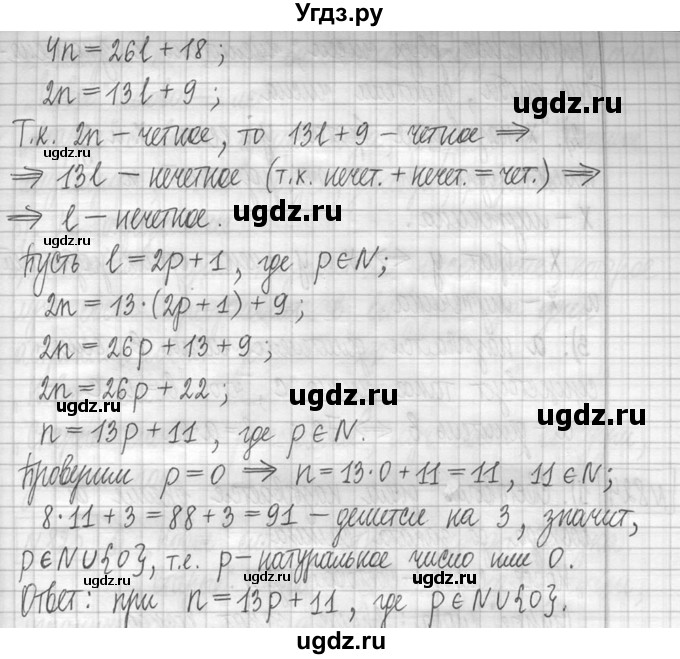 Угдз.ру
4n = 26l + 18 ;
2n = 13l + 9 ;
ugdz.ru
Т.к. 2n – четное, то 13l + 9 – четное ⇒
ugdz.ru
⇒ 13l – нечетное (т.к. нечет. + нечет. = чет.) ⇒
⇒ l – нечетное.
ugdz.ru
ugdz.ru
Пусть l = 2p + 1, где p ∈ N;
2n = 13·(2p + 1) + 9 ;
ugdz.ru
ugdz.ru
2n = 26p + 13 + 9 ;
2n = 26p + 22 ;
ugdz.ru
ugdz.ru
ugdz.ru
n = 13p + 11 , где p ∈ N.
Проверим p = 0 ⇒ n = 13·0 + 11 = 11, 11 ∈ N;
ugdz.ru
ugdz.ru
8·11 + 3 = 88 + 3 = 91 – делится на 3, значит,
p ∈ N ∪ {0}, т.е. p – натуральное число или 0.
ugdz.ru
ugdz.ru
Ответ: при n = 13p + 11, где p ∈ N ∪ {0}.
ugdz.ru